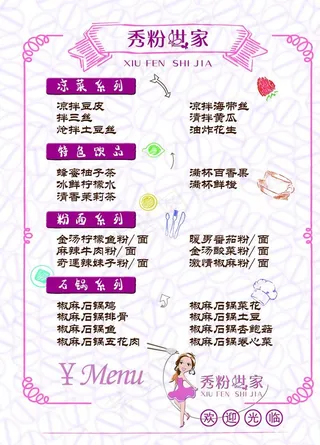 秀粉世家
XIU FEN SHI JIA
凉菜系列
凉拌豆皮
拌三丝
炝拌土豆丝
凉拌海带丝
清拌黄瓜
油炸花生
特色饮品
蜂蜜柚子茶
冰鲜柠檬水
清香茉莉茶
满杯百香果
满杯鲜橙
粉面系列
金汤柠檬鱼粉/面
麻辣牛肉粉/面
奇遇辣妹子粉/面
暖男番茄粉/面
金汤酸菜粉/面
激情椒麻粉/面
石锅系列
椒麻石锅鸡
椒麻石锅排骨
椒麻石锅鱼
椒麻石锅五花肉
椒麻石锅菜花
椒麻石锅土豆
椒麻石锅杏鲍菇
椒麻石锅卷心菜
¥ Menu
秀粉世家
XIU FEN SHI JIA
欢迎光临